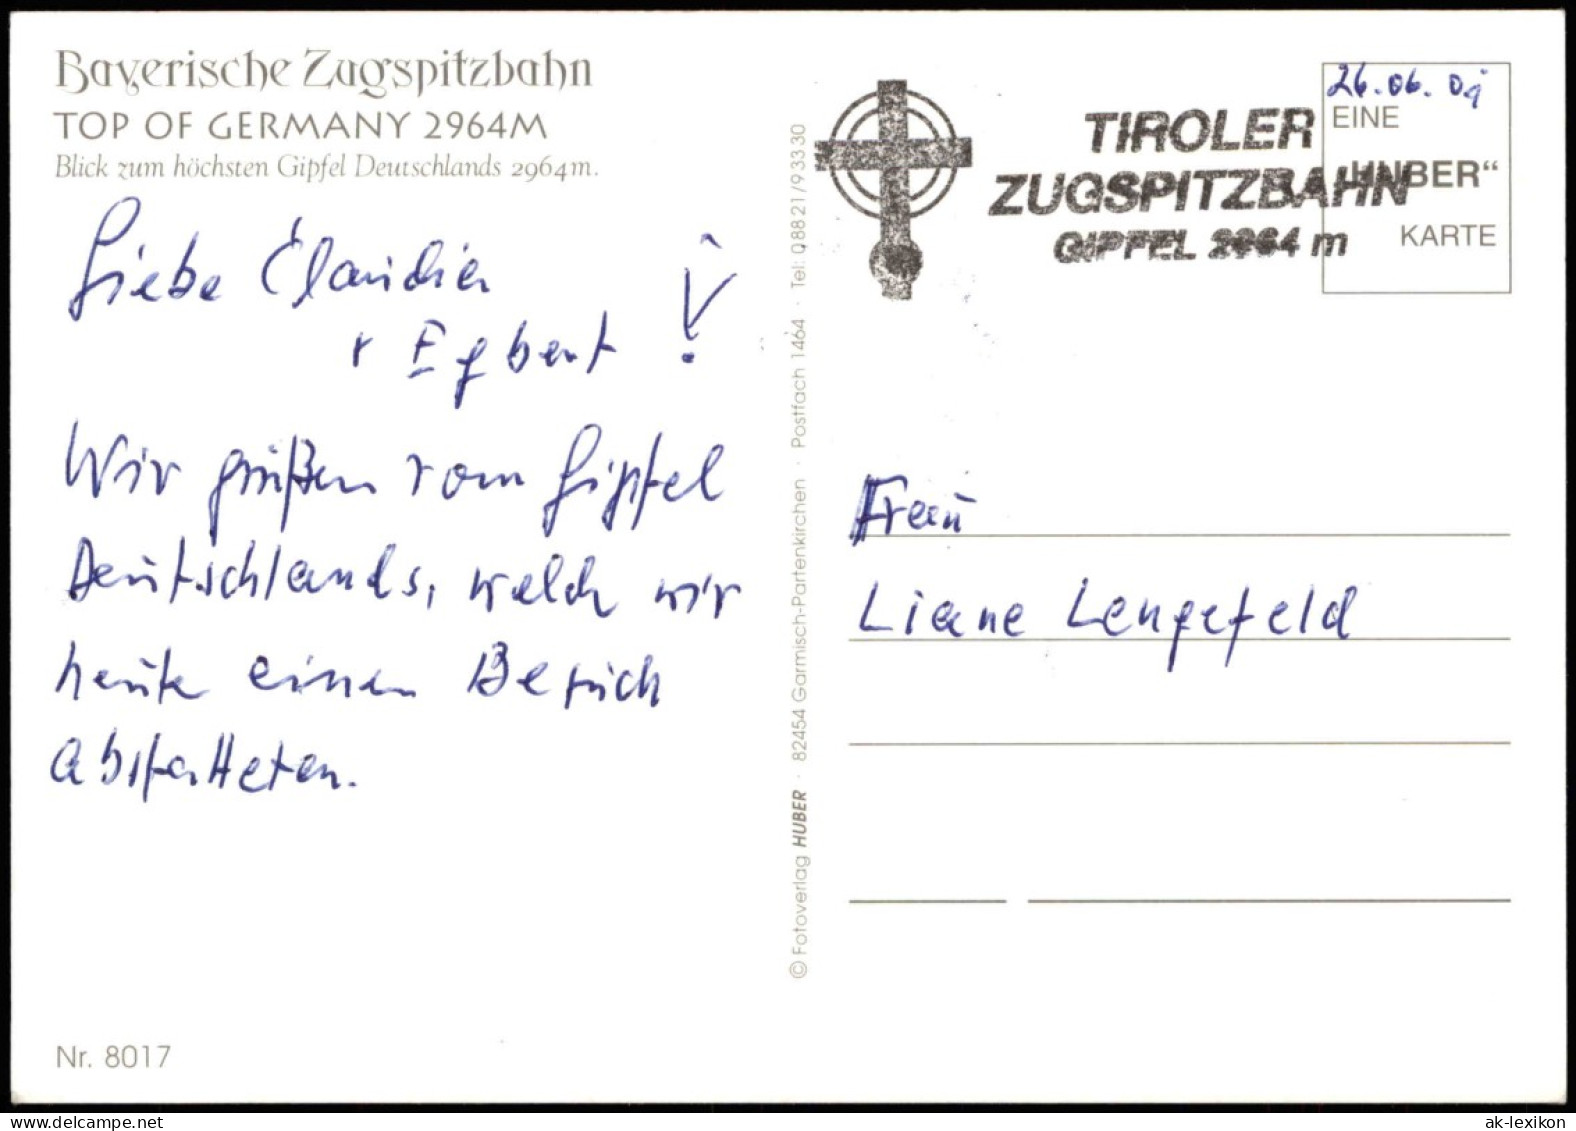 Bayerische Zugspitzbahn
TOP OF GERMANY 2964M
Blick zum höchsten Gipfel Deutschlands 2964m.
Liebe Claudia
+ Egbert !
Wir grüßen vom Gipfel
Deutschlands, welch wir
heute einen Besuch
abstatteten.
Nr. 8017
© Fotoverlag HUBER · 82454 Garmisch-Partenkirchen · Postfach 1464 · Tel: 08821/93330
TIROLER
ZUGSPITZBAHN
GIPFEL 2964 m
26.06.
EINE
„HUBER“
KARTE
Frau
Liane Lengefeld
ak-lexikon